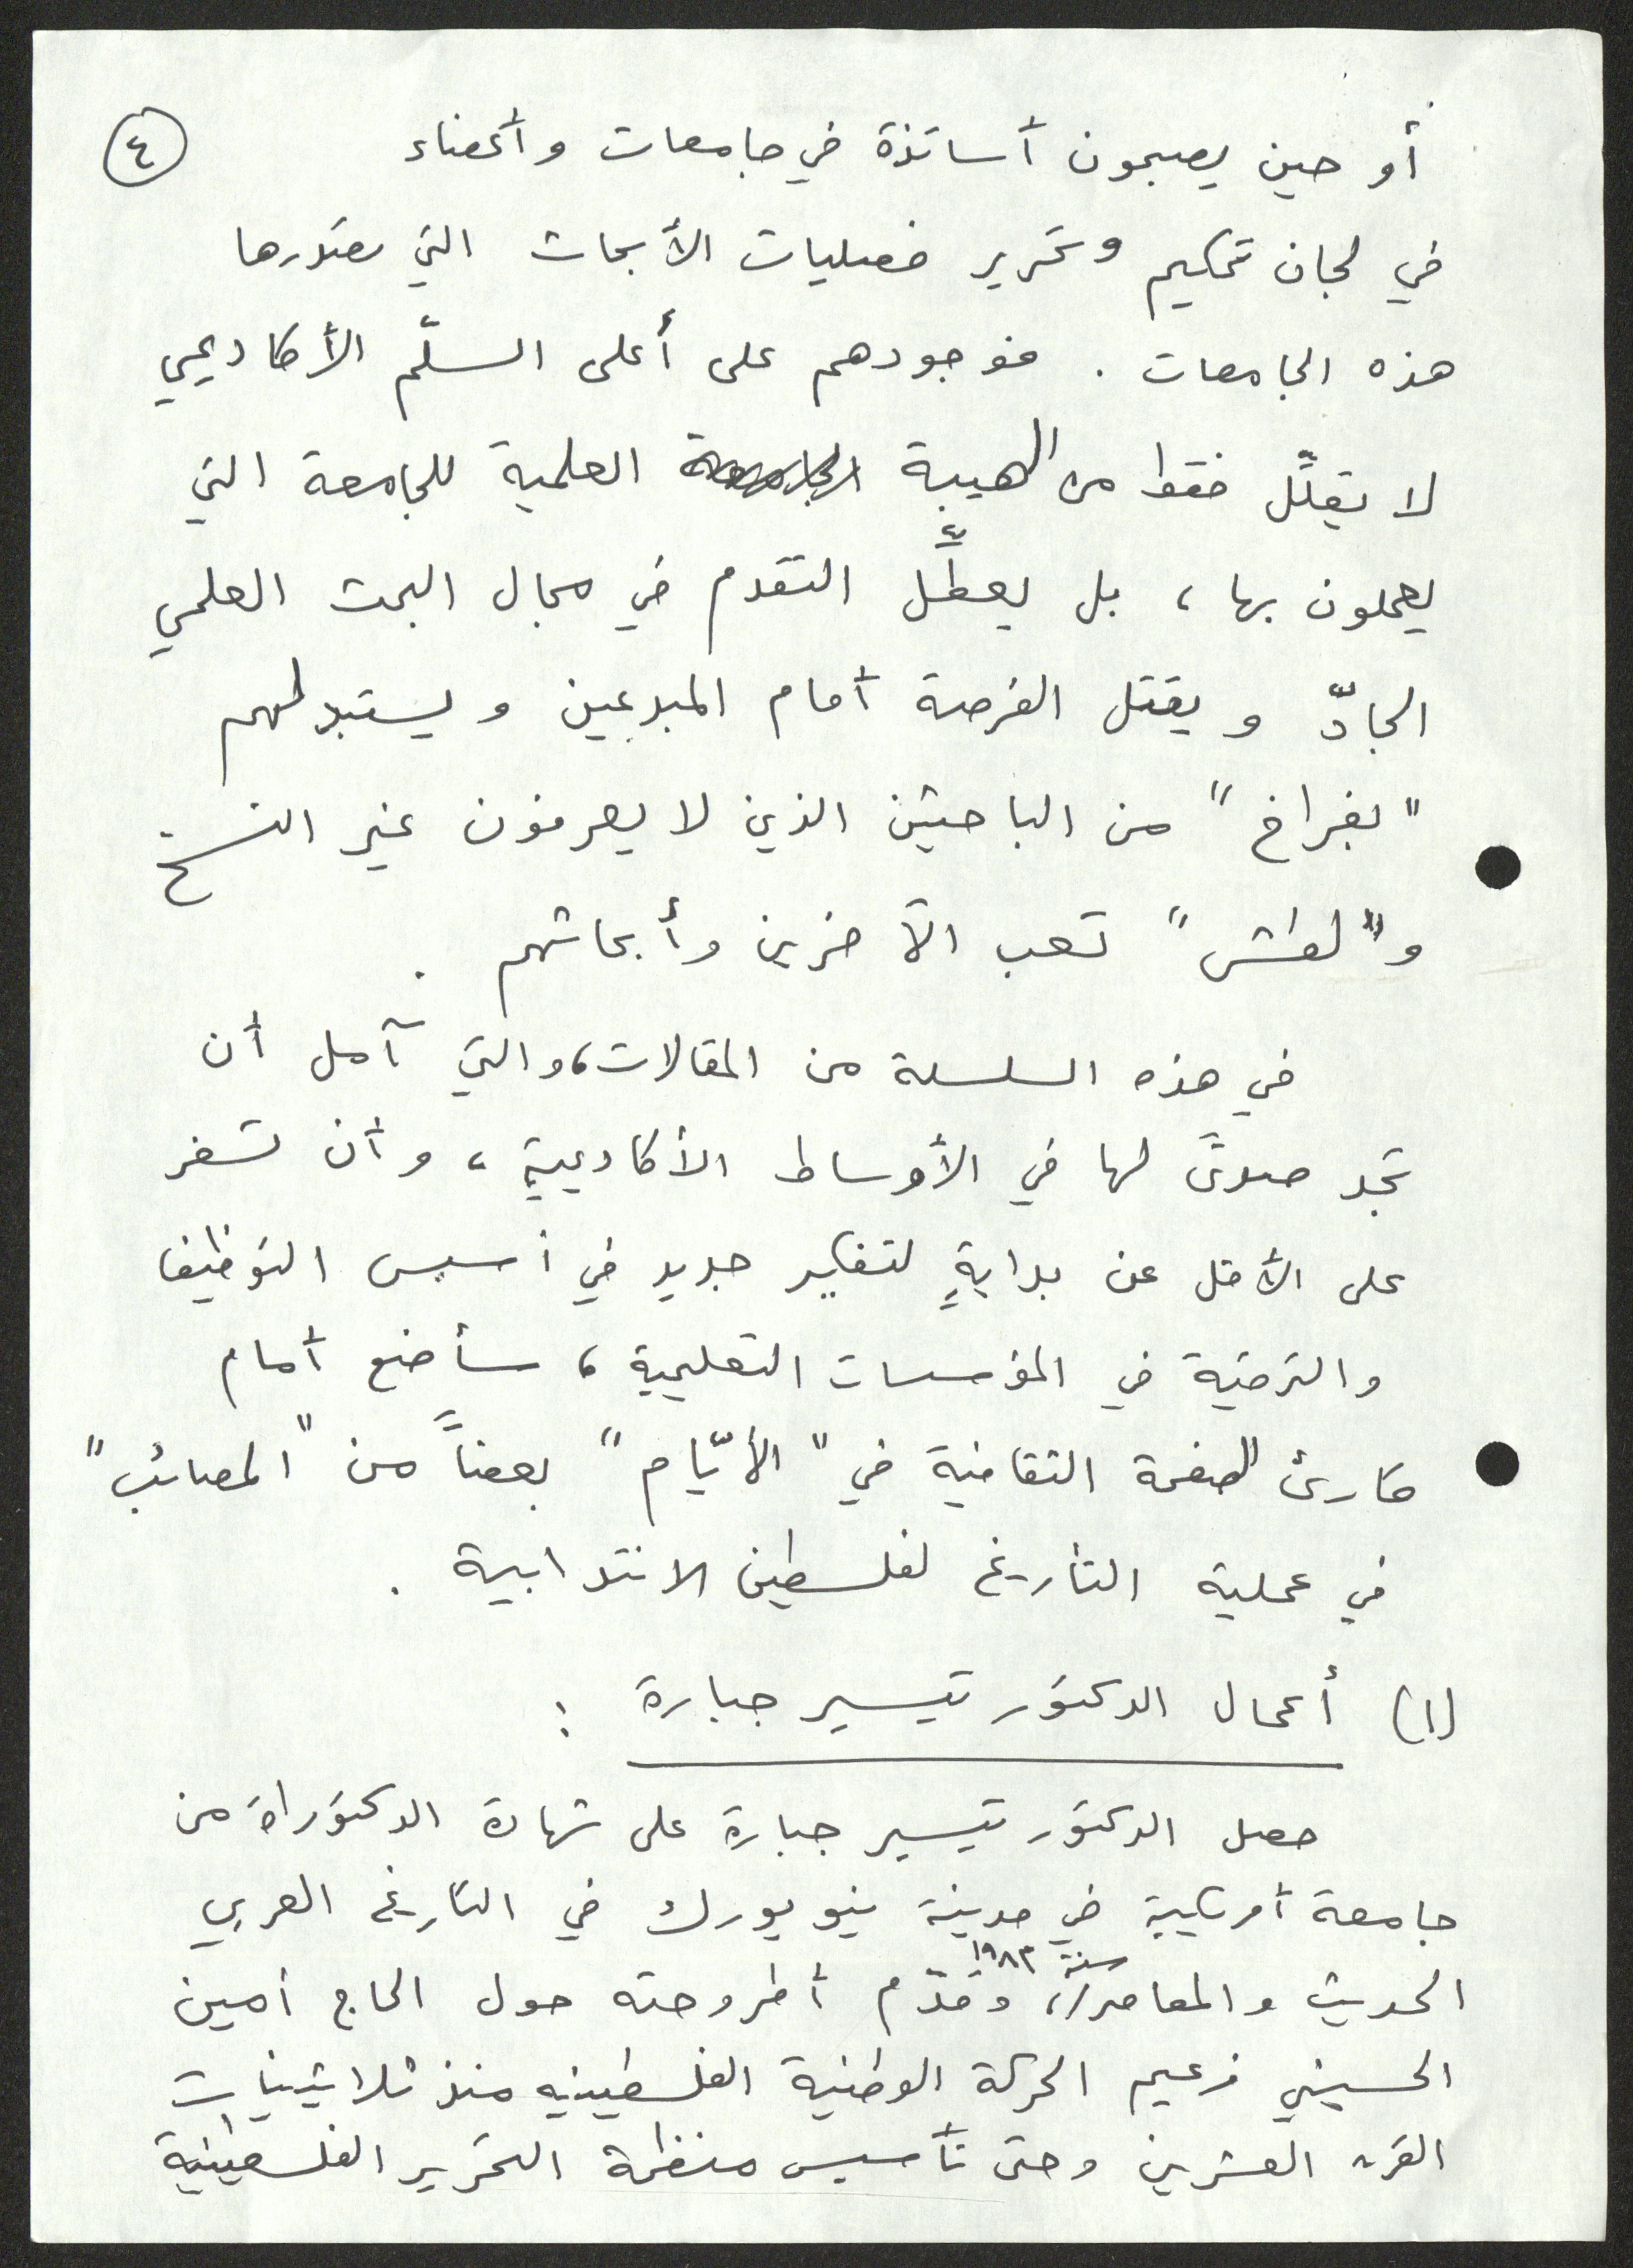 ٤
أو حين يصبحون أساتذة في جامعات وأعضاء
في لجان تحكيم وتحرير فصليات الأبحاث التي تصدرها
هذه الجامعات . فوجودهم على أعلى السلّم الأكاديمي
لا يقلّل فقط من الهيبة العلمية للجامعة التي
يعملون بها، بل يعطِّل التقدم في مجال البحث العلمي
الجادّ ويقتل الفرصة أمام المبدعين ويستبدلهم
"بفراخ" من الباحثين الذين لا يعرفون غير النسخ
و"لطش" تعب الآخرين وأبحاثهم .
في هذه السلسلة من المقالات، والتي آمل أن
تجد صدىً لها في الأوساط الأكاديمية، وأن تسفر
على الأقل عن بدايةٍ لتفكير جديد في أسس التوظيف
والترقية في المؤسسات التعليمية، سأضع أمام
قارئ الصفحة الثقافية في "الأيّام" بعضاً من "المصائب"
في عملية التأريخ لفلسطين الانتدابية .
(١) أعمال الدكتور تيسير جبارة :
حصل الدكتور تيسير جبارة على شهادة الدكتوراة من
جامعة أمريكية في مدينة نيويورك في التاريخ العربي
الحديث والمعاصر سنة ١٩٨٣، وقدّم أطروحته حول الحاج أمين
الحسيني زعيم الحركة الوطنية الفلسطينيه منذ ثلاثينيات
القرن العشرين وحتى تأسيس منظمة التحرير الفلسطينية